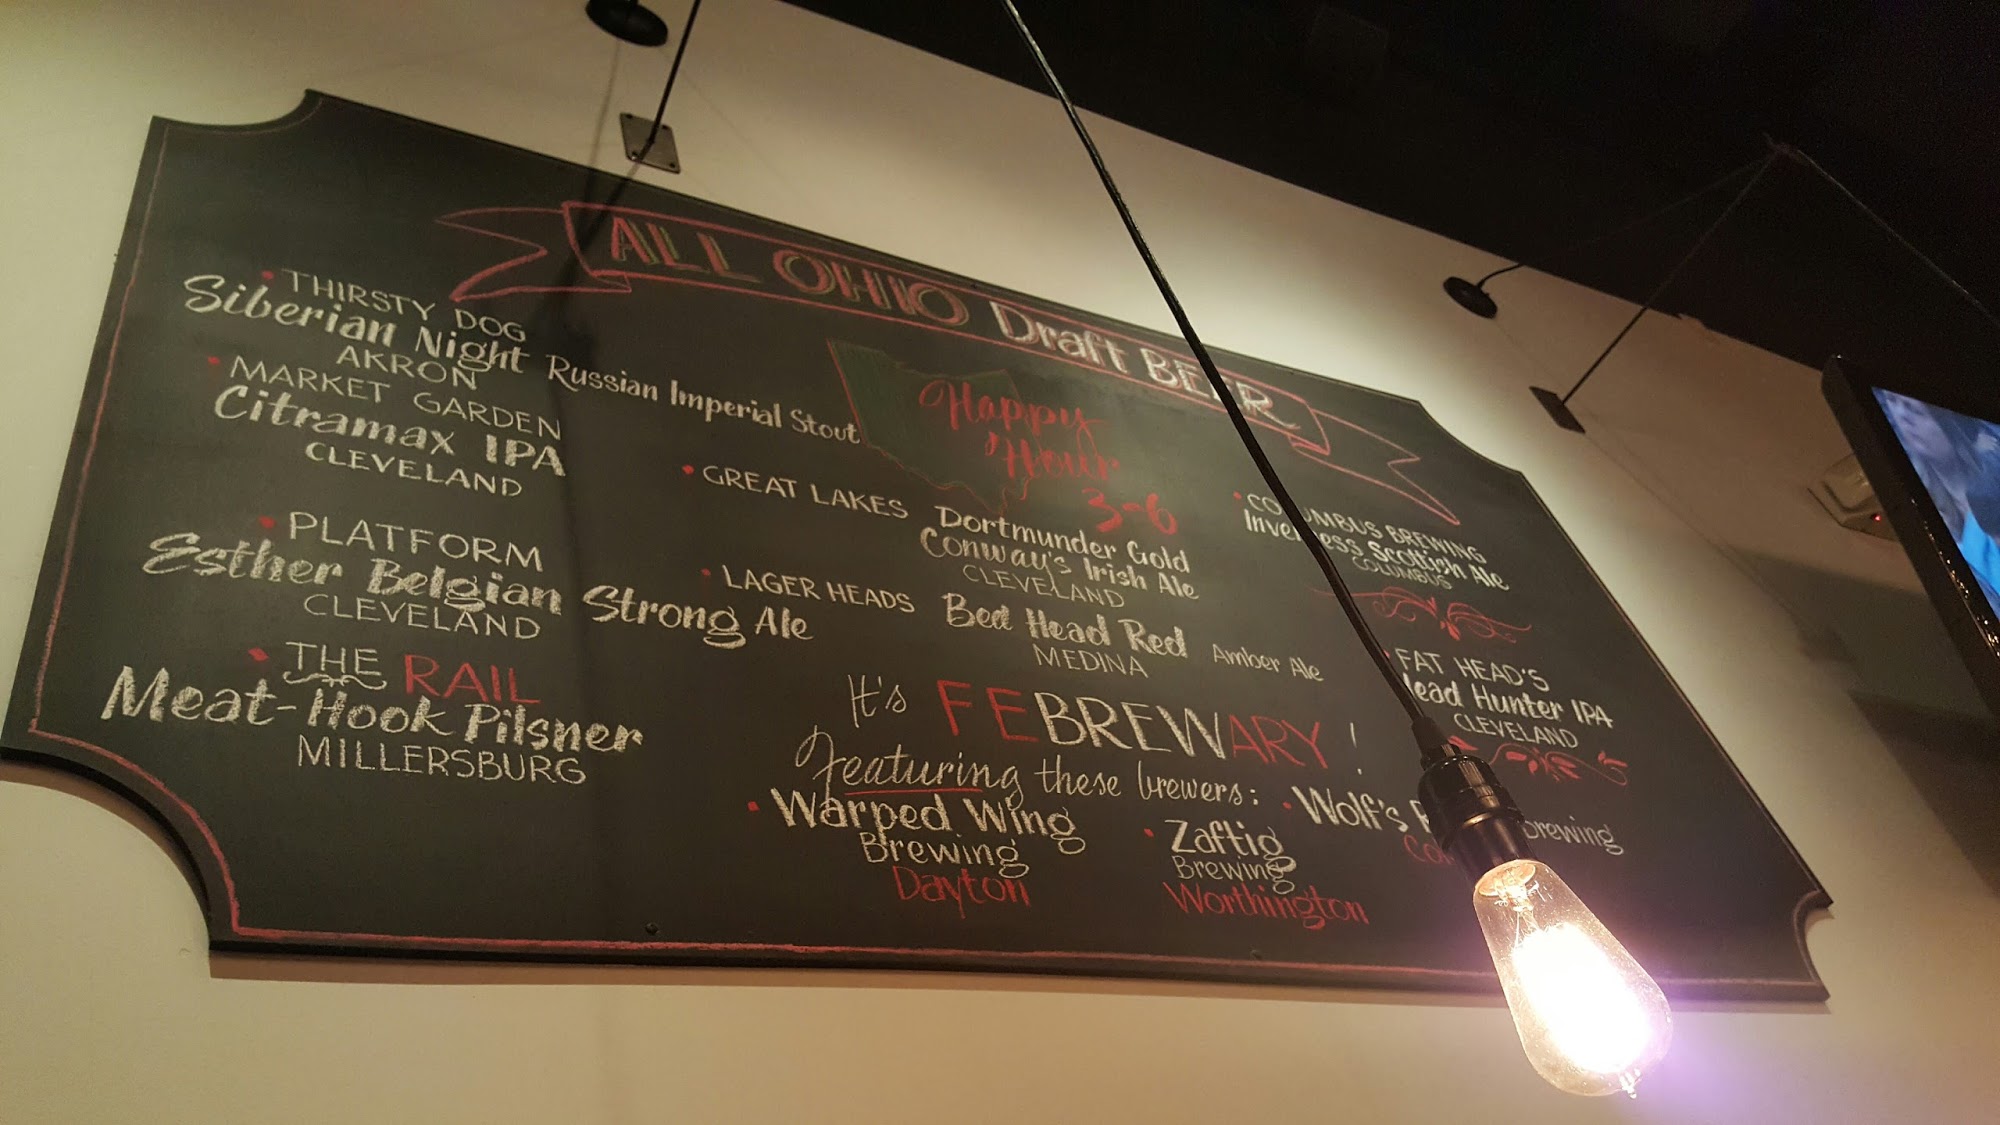 ALL OHIO Draft BEER
THIRSTY DOG
Siberian Night Russian Imperial Stout
AKRON
MARKET GARDEN
Citramax IPA
CLEVELAND
PLATFORM
Esther Belgian Strong Ale
CLEVELAND
THE RAIL
Meat-Hook Pilsner
MILLERSBURG
Happy
Hour
3-6
GREAT LAKES Dortmunder Gold
Conway's Irish Ale
CLEVELAND
LAGER HEADS Bed Head Red Amber Ale
MEDINA
COLUMBUS BREWING
Inverness Scottish Ale
COLUMBUS
FAT HEAD'S
Head Hunter IPA
CLEVELAND
It's FEBREWARY!
Featuring these brewers:
Warped Wing
Brewing
Dayton
Zaftig
Brewing
Worthington
Wolf's Brewing